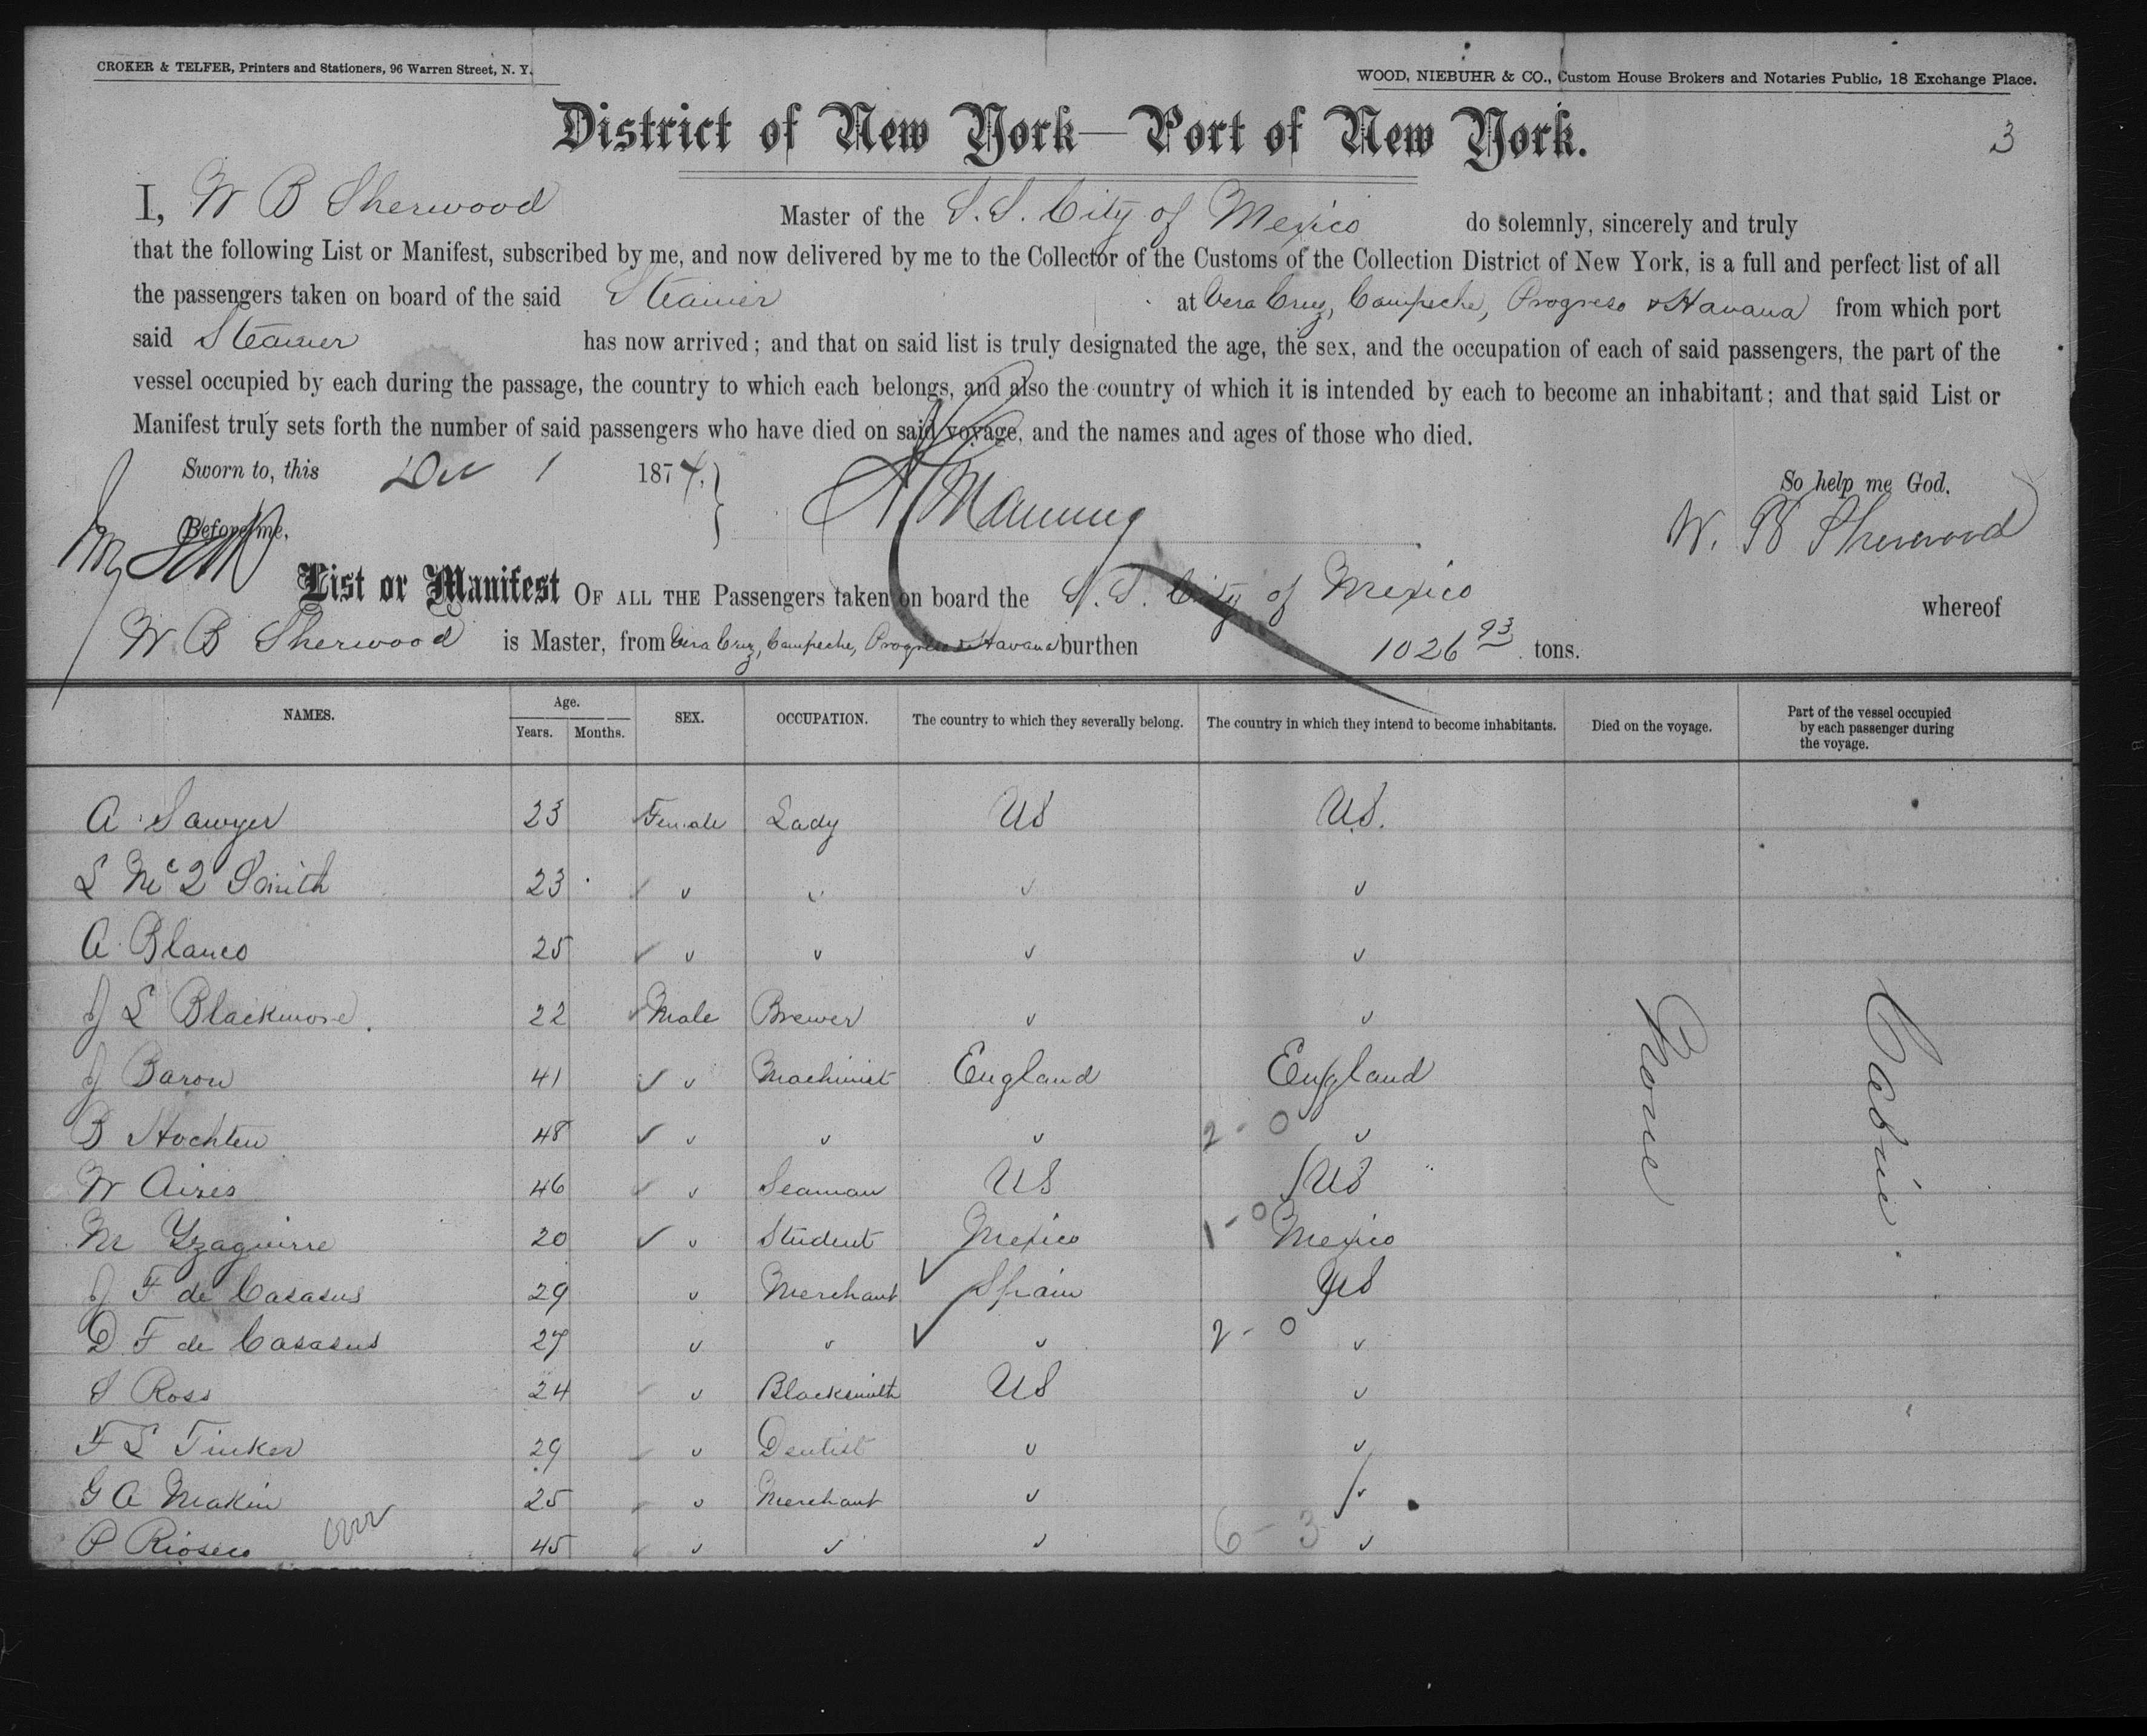 CROKER & TELFER, Printers and Stationers, 96 Warren Street, N. Y.
WOOD, NIEBUHR & CO., Custom House Brokers and Notaries Public, 18 Exchange Place.
District of New York—Port of New York.
3
I, W B Sherwood Master of the S.S. City of Mexico do solemnly, sincerely and truly
that the following List or Manifest, subscribed by me, and now delivered by me to the Collector of the Customs of the Collection District of New York, is a full and perfect list of all
the passengers taken on board of the said Steamer at Vera Cruz, Campeche, Progreso & Havana from which port
said Steamer has now arrived; and that on said list is truly designated the age, the sex, and the occupation of each of said passengers, the part of the
vessel occupied by each during the passage, the country to which each belongs, and also the country of which it is intended by each to become an inhabitant; and that said List or
Manifest truly sets forth the number of said passengers who have died on said voyage, and the names and ages of those who died.
Sworn to, this Dec 1 1874. So help me God,
Before me, Manning W. B Sherwood
List or Manifest OF ALL THE Passengers taken on board the S. S. City of Mexico whereof
W B Sherwood is Master, from Vera Cruz, Campeche, Progreso & Havana burthen 1026 93 tons.
NAMES. Age. Years. Months. SEX. OCCUPATION. The country to which they severally belong. The country in which they intend to become inhabitants. Died on the voyage. Part of the vessel occupied by each passenger during the voyage.
A Sawyer 23 Female Lady US US.
L Mc Q Smith 23 " " " "
A Blanco 25 " " " "
J L Blackmore. 22 Male Brewer " "
J Baron 41 " Machinist England England
B Stochten 48 " " " 2 - 0 "
W Aires 46 " Seaman US US
M Yzaguirre 20 " Student Mexico 1 - 0 Mexico
J F de Casasus 29 " Merchant Spain US
D F de Casasus 27 " " " 2 - 0 "
S Ross 24 " Blacksmith US "
F L Tinker 29 " Dentist " "
G A Makin 25 " Merchant " "
P Rioseco 45 " " " 6 - 3 "
None
Cabin.